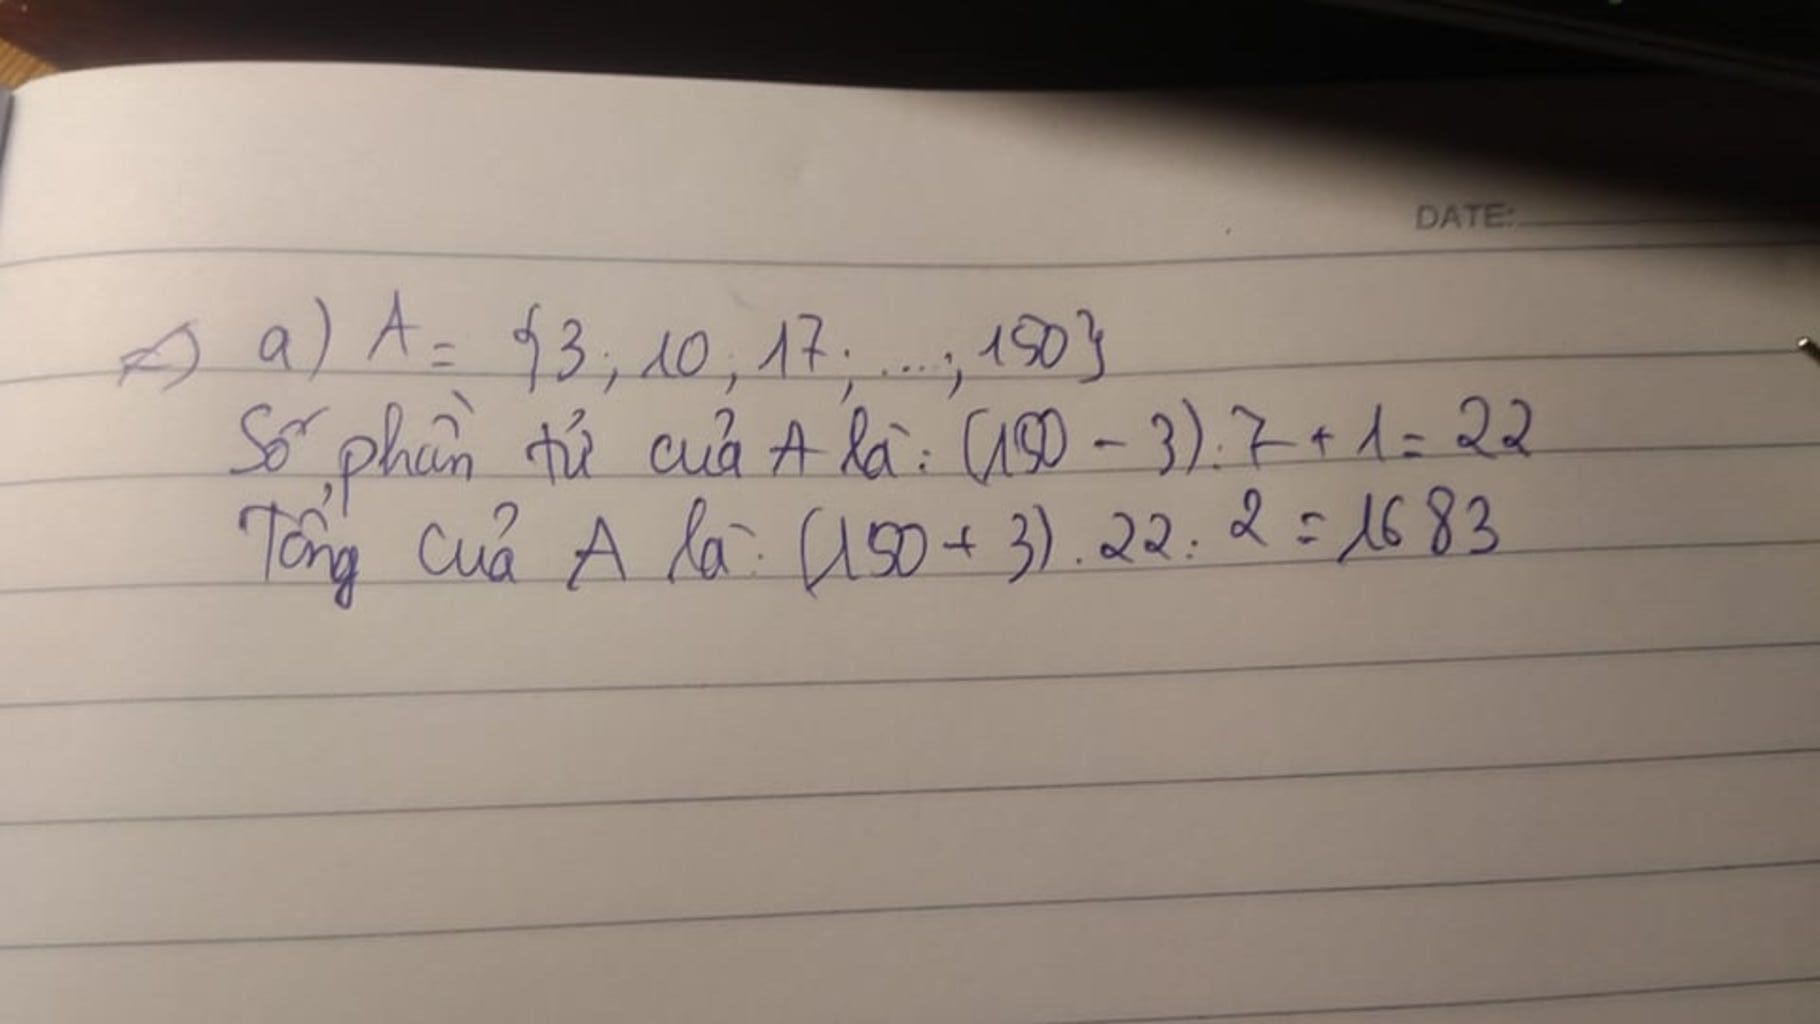 DATE:
a) A = {3; 10; 17; ...; 150}
Số phần tử của A là: (150 - 3): 7 + 1 = 22
Tổng của A là: (150 + 3) . 22 : 2 = 1683